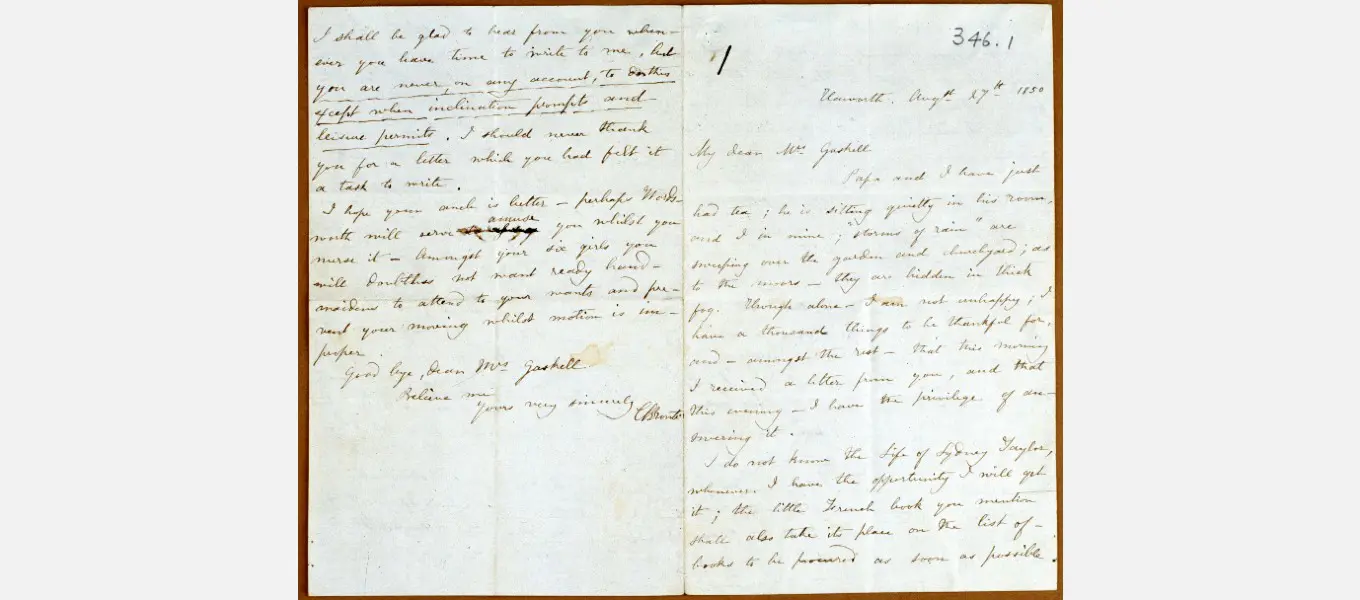 346.1
Haworth. Augst. 27th 1850
My dear Mrs Gaskell
Papa and I have just
had tea; he is sitting quietly in his room,
and I in mine; "storms of rain" are
sweeping over the garden and churchyard; as
to the moors - they are hidden in thick
fog. Though alone - I am not unhappy; I
have a thousand things to be thankful for,
and - amongst the rest - that this morning
I received a letter from you, and that
this evening - I have the privilege of an-
swering it.
I do not know the Life of Sydney Taylor,
whenever I have the opportunity I will get
it; the little French book you mention
shall also take its place on the list of -
books to be procured as soon as possible.
I shall be glad to hear from you when-
ever you have time to write to me, but
you are never, on any account, to do this
except when inclination prompts and
leisure permits. I should never thank
you for a letter which you had felt it
a task to write.
I hope your ancle is better - perhaps Words-
worth will serve to amuse you whilst you
nurse it - Amongst your six girls you
will doubtless not want ready hand-
maidens to attend to your wants and pre-
vent your moving whilst motion is im-
proper
Good bye, dear Mrs Gaskell
Believe me
Yours very sincerely
C Brontë